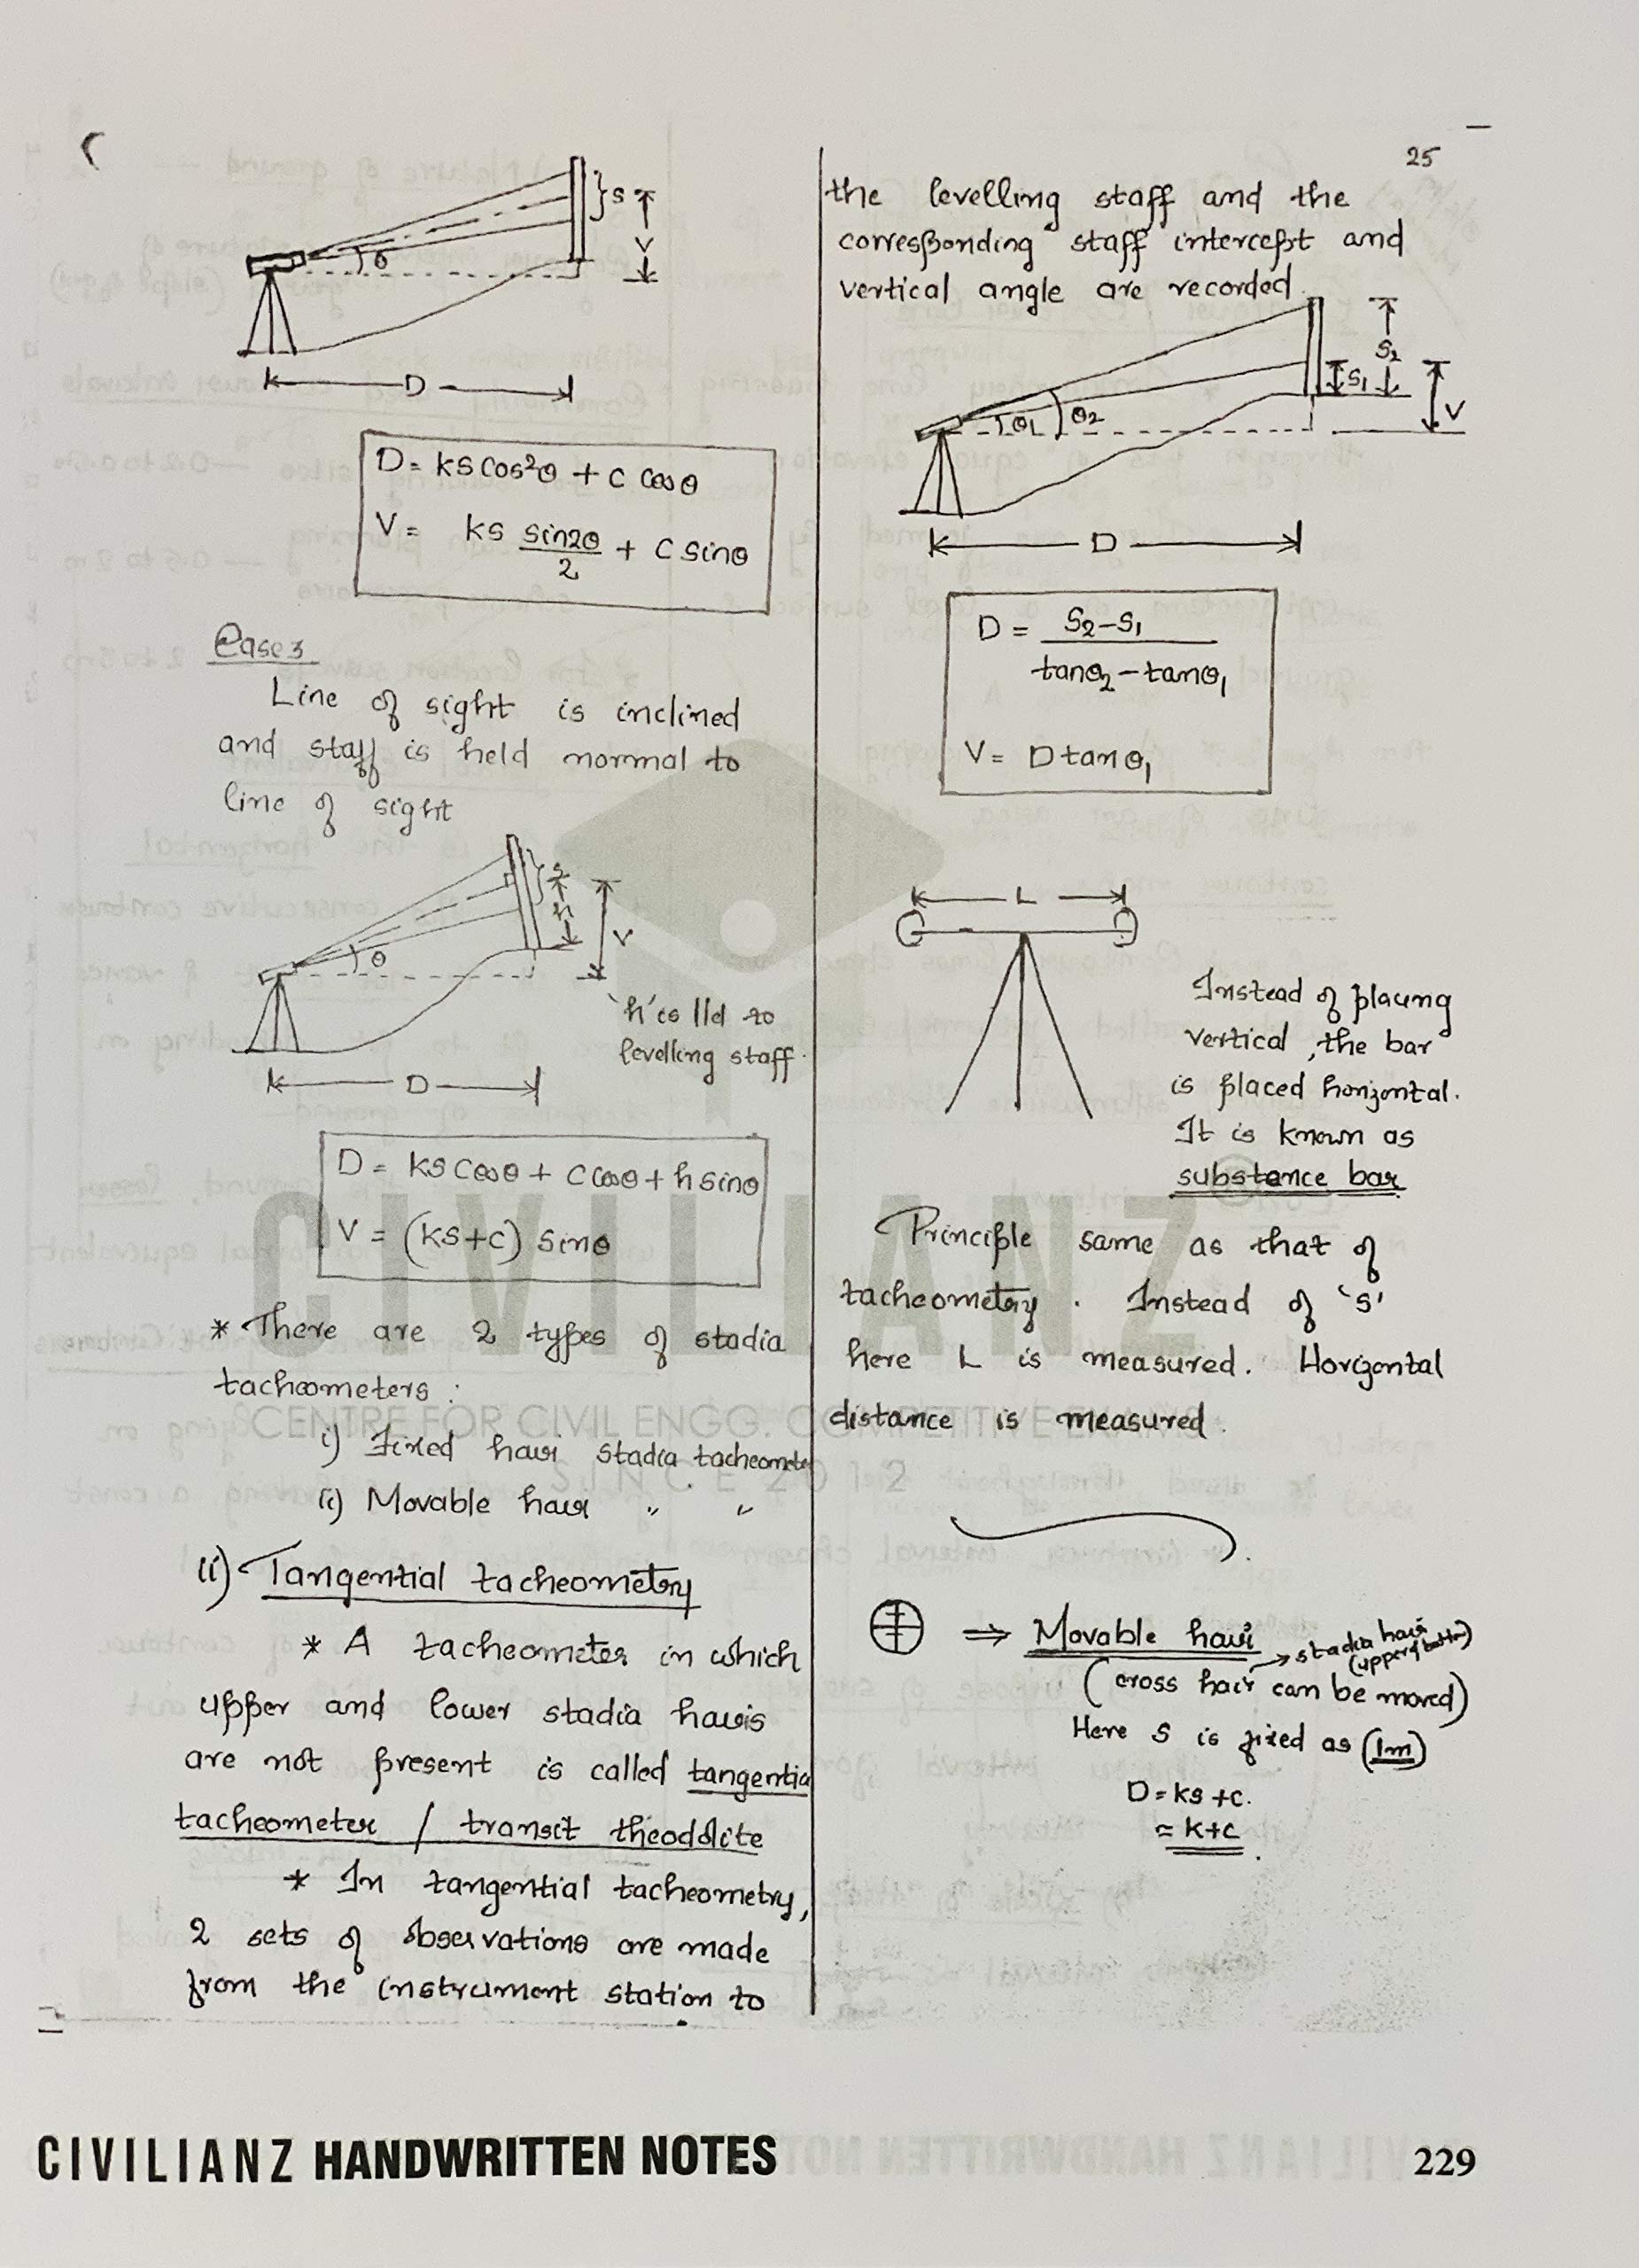 25
S
V
θ
D
D = ks cos²θ + c cosθ
V = ks sin2θ/2 + c sinθ
Case 3
Line of sight is inclined
and staff is held normal to
line of sight
S
h
V
θ
'h' is lld to
levelling staff.
D
D = ks cosθ + c cosθ + h sinθ
V = (ks+c) sinθ
* There are 2 types of stadia
tacheometers :
i) Fixed hair stadia tacheometer
ii) Movable hair " "
ii) Tangential tacheometry
* A tacheometer in which
upper and lower stadia hairs
are not present is called tangentia
tacheometer / transit theodolite
* In tangential tacheometry,
2 sets of observations are made
from the instrument station to
the levelling staff and the
corresponding staff intercept and
vertical angle are recorded.
S₂
S₁
V
θ₁
θ₂
D
D = S₂-S₁ / tanθ₂ - tanθ₁
V = D tan θ₁
L
Instead of placing
vertical, the bar
is placed horizontal.
It is known as
substance bar
Principle same as that of
tacheometry. Instead of 's'
here L is measured. Horizontal
distance is measured.
⇒ Movable hair
→ stadia hair
(upper & bottom)
(cross hair can be moved)
Here S is fixed as (1m)
D = ks + c.
≈ k+c.
CIVILIANZ
CENTRE FOR CIVIL ENGG. COMPETITIVE EXAMS
SINCE 2012
CIVILIANZ HANDWRITTEN NOTES
229